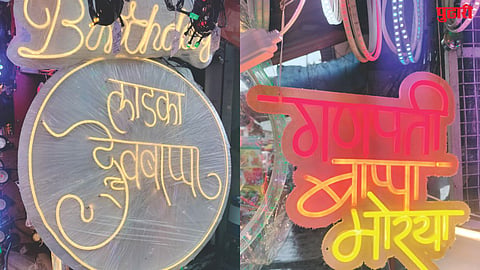 Birthday
लाडका
देवबाप्पा
गणपती
बाप्पा
मोरया
पुढारी